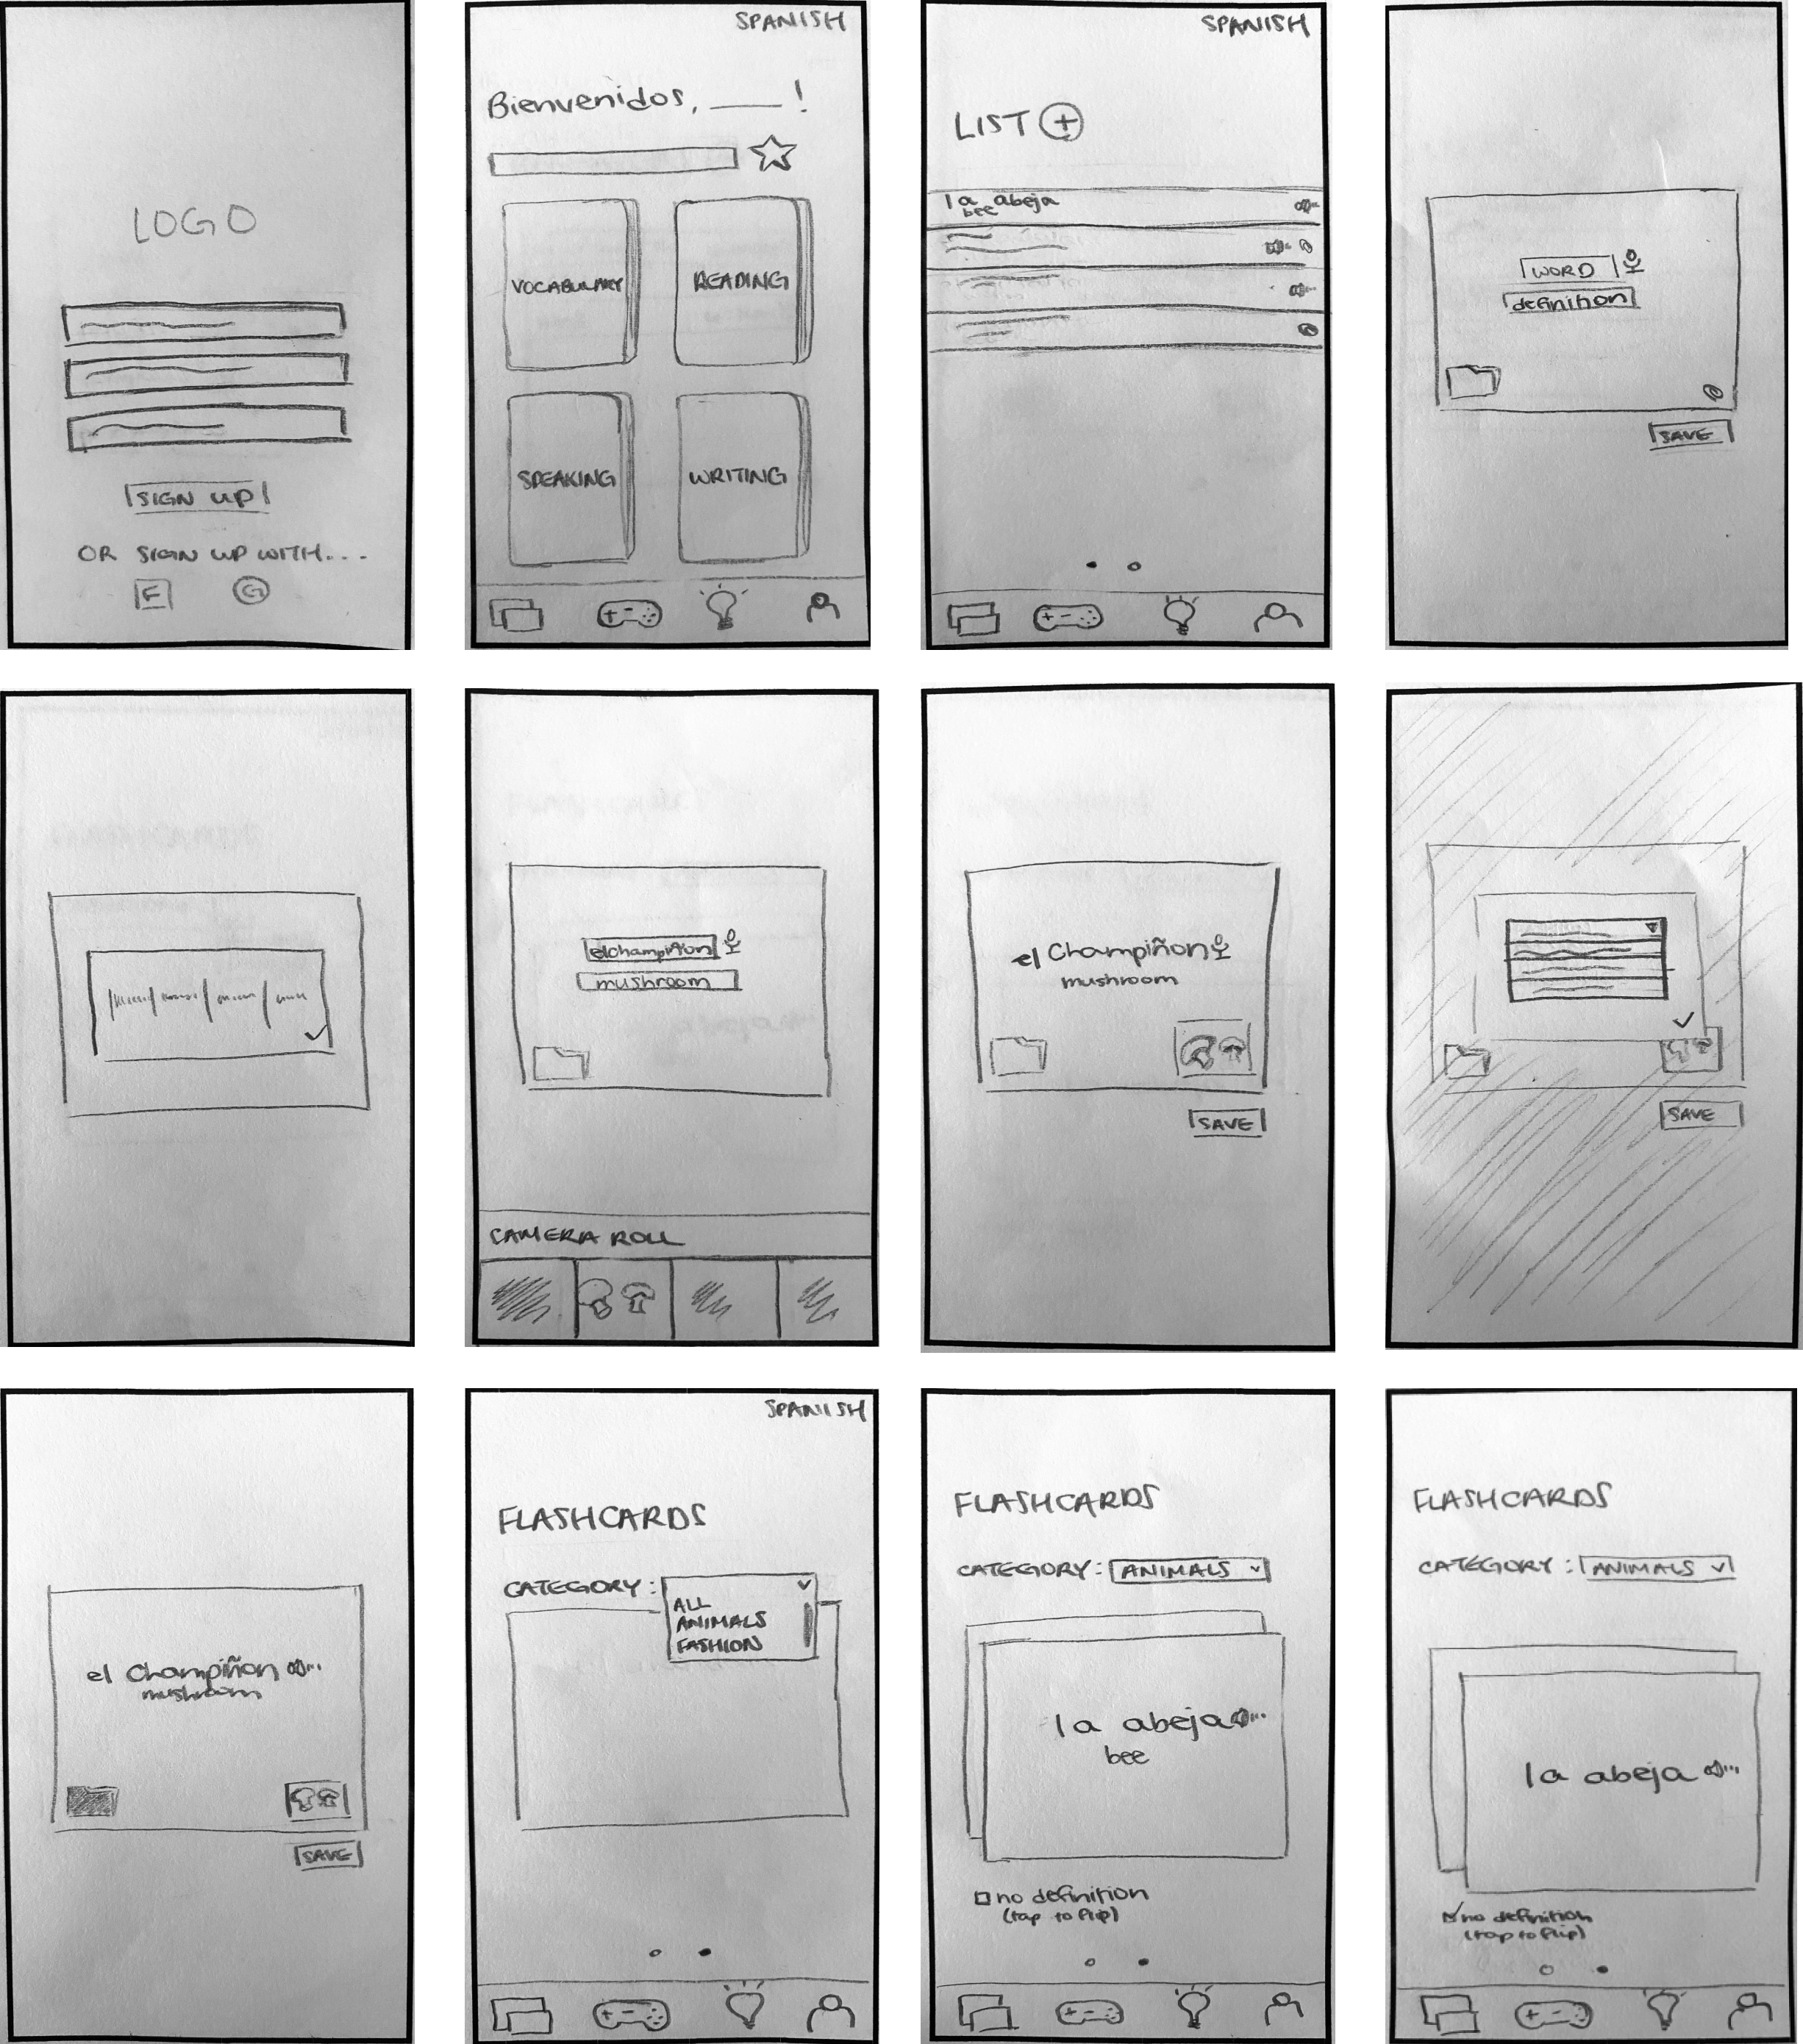 LOGO
SIGN UP
OR SIGN UP WITH...
F
G
SPANISH
Bienvenidos, ___!
VOCABULARY
READING
SPEAKING
WRITING
SPANISH
LIST +
la abeja
bee
WORD
definition
SAVE
el champiñon
mushroom
CAMERA ROLL
el Champiñon
mushroom
SAVE
SAVE
el Champiñon
mushroom
SAVE
SPANISH
FLASHCARDS
CATEGORY:
ALL
ANIMALS
FASHION
FLASHCARDS
CATEGORY: ANIMALS
la abeja
bee
no definition
(tap to flip)
FLASHCARDS
CATEGORY: ANIMALS
la abeja
no definition
(tap to flip)